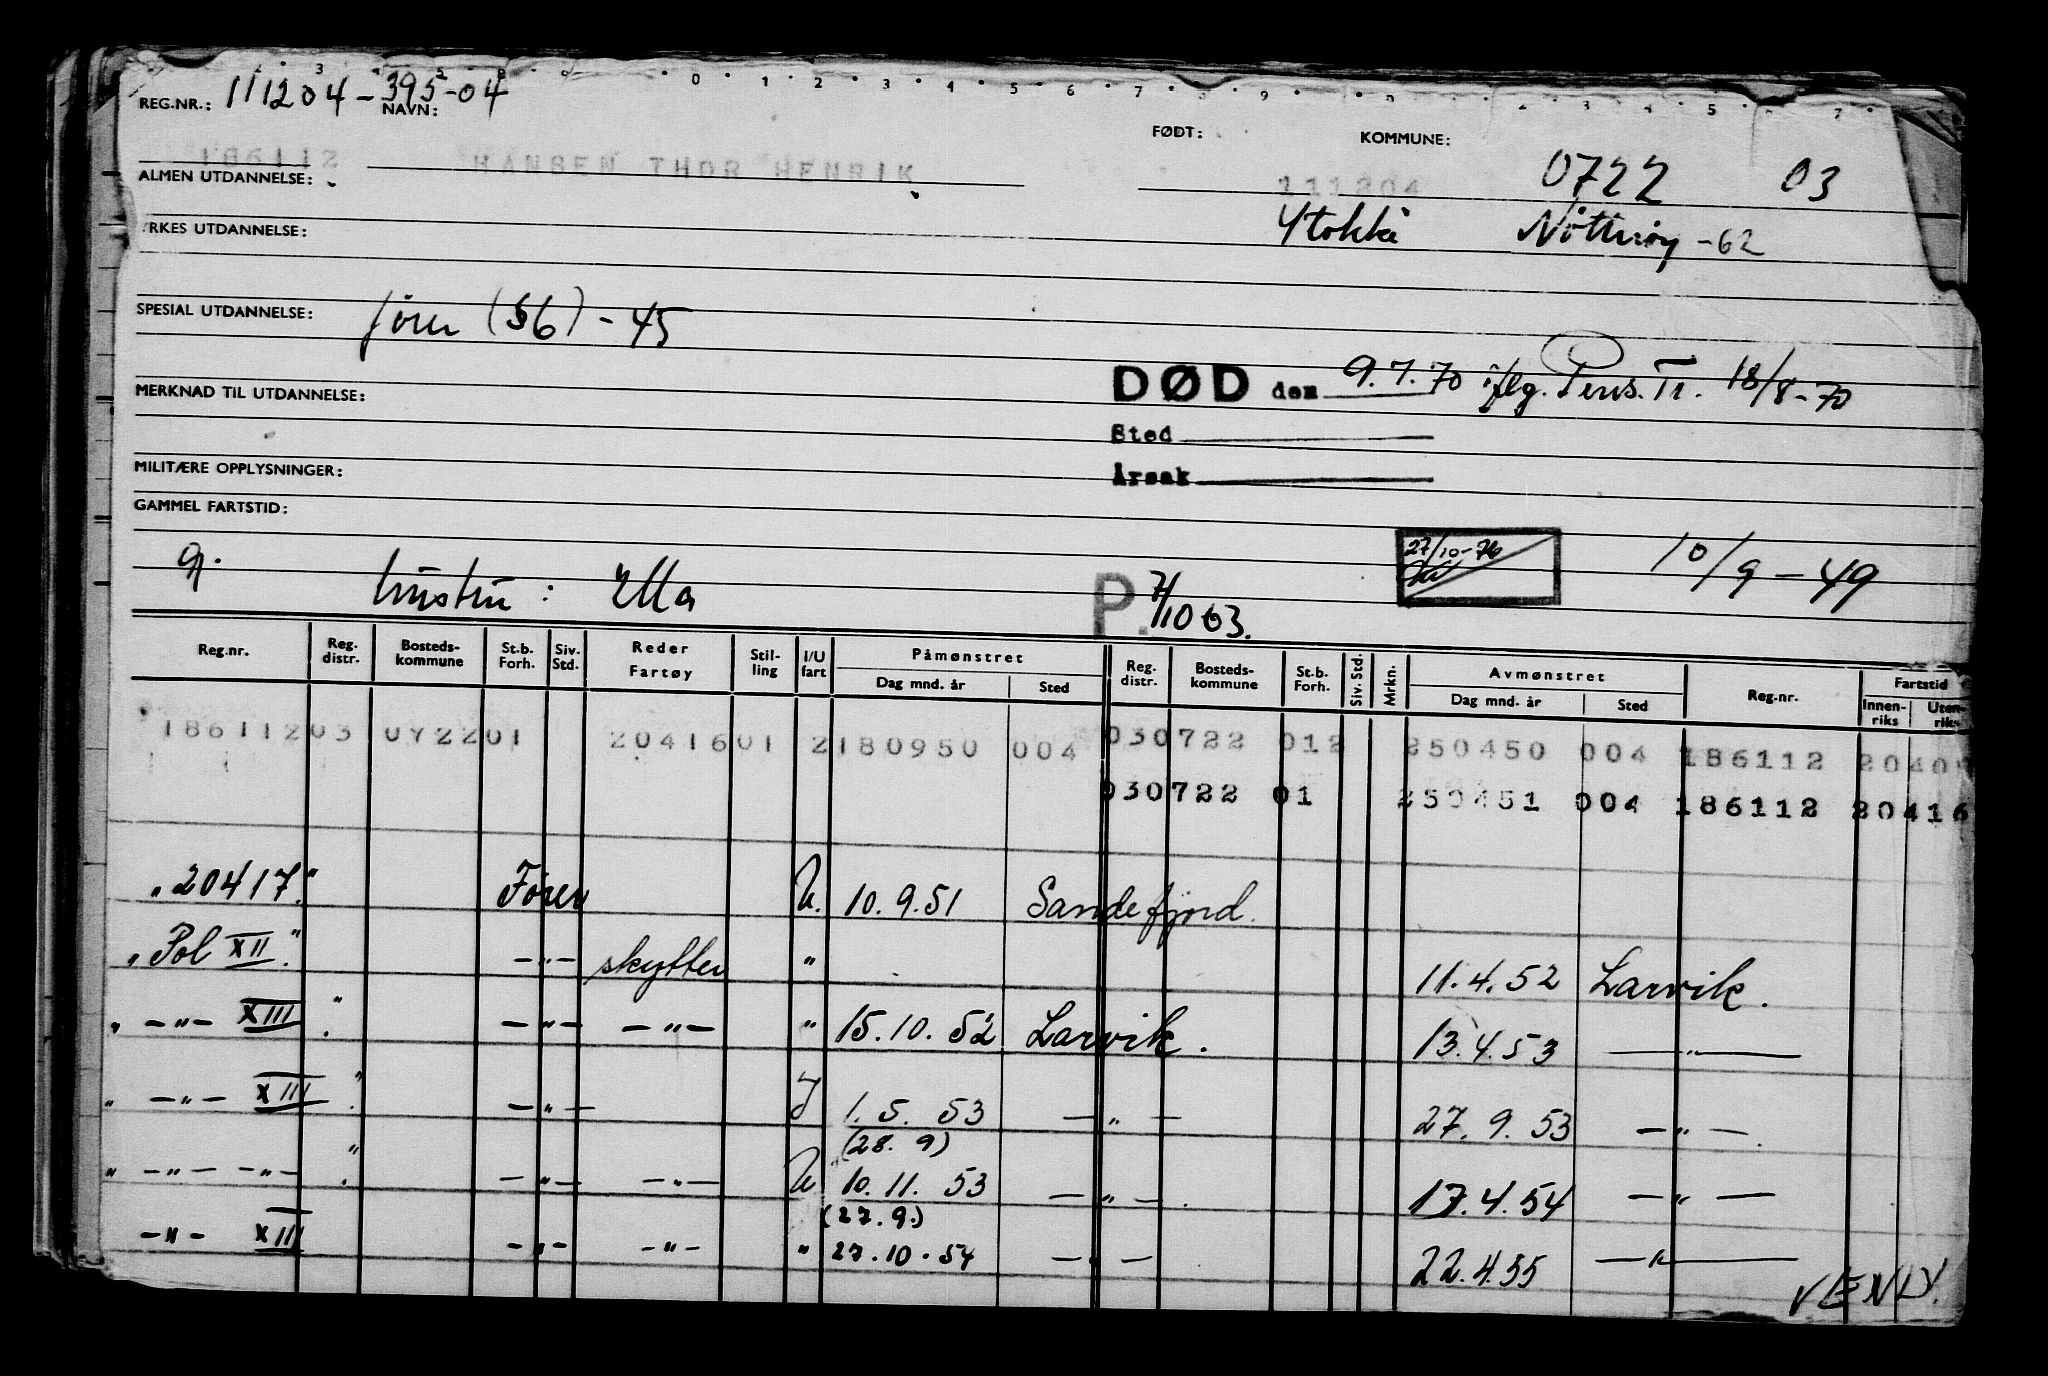 2 3 4 5 8 9 0 1 2 3 4 5 6 7 8 9 2 3 4 5 6 7
REG.NR.: 111204-395-04 NAVN: FØDT: KOMMUNE:
186112 HANSEN THOR HENRIK 111204 0722 03
ALMEN UTDANNELSE:
Nøtterøy -62
YRKES UTDANNELSE:
SPESIAL UTDANNELSE: fører (§6) - 45
DØD den 9.7.70 iflg. Pens.Tr. 18/8-70
MERKNAD TIL UTDANNELSE:
Sted
MILITÆRE OPPLYSNINGER: Årsak
GAMMEL FARTSTID:
27/10-76 10/9-49
g. hustru: Ella P. 7/10 63.
Reg.nr. Reg. distr. Bosteds-kommune St.b. Forh. Siv. Std. Reder Fartøy Stil-ling I/U fart Påmønstret Dag mnd. år Sted Reg. distr. Bosteds-kommune St.b. Forh. Siv. Std. Mrkn. Avmønstret Dag mnd. år Sted Reg.nr. Fartstid Innen-riks Uten-riks
186112 03 0722 01 20416 01 2 180950 004 030722 012 250450 004 186112 2040
030722 01 250451 004 186112 20416
"20417." Fører U. 10.9.51 Sandefjord.
"Pol XII." -"- skytter " 11.4.52 Larvik.
" -"- XIII". -"- -"- " 15.10.52 Larvik. 13.4.53 -"-
" -"- XIII". -"- I 1.5.53 -"- 27.9.53 -"-.
(28.9)
" -"- -"- ". -"- -"- U 10.11.53 -"-. 17.4.54 -"-
(27.9.)
-"- XIII -"- -"- " 27.10.54 -"- 22.4.55 -"-
VEND.